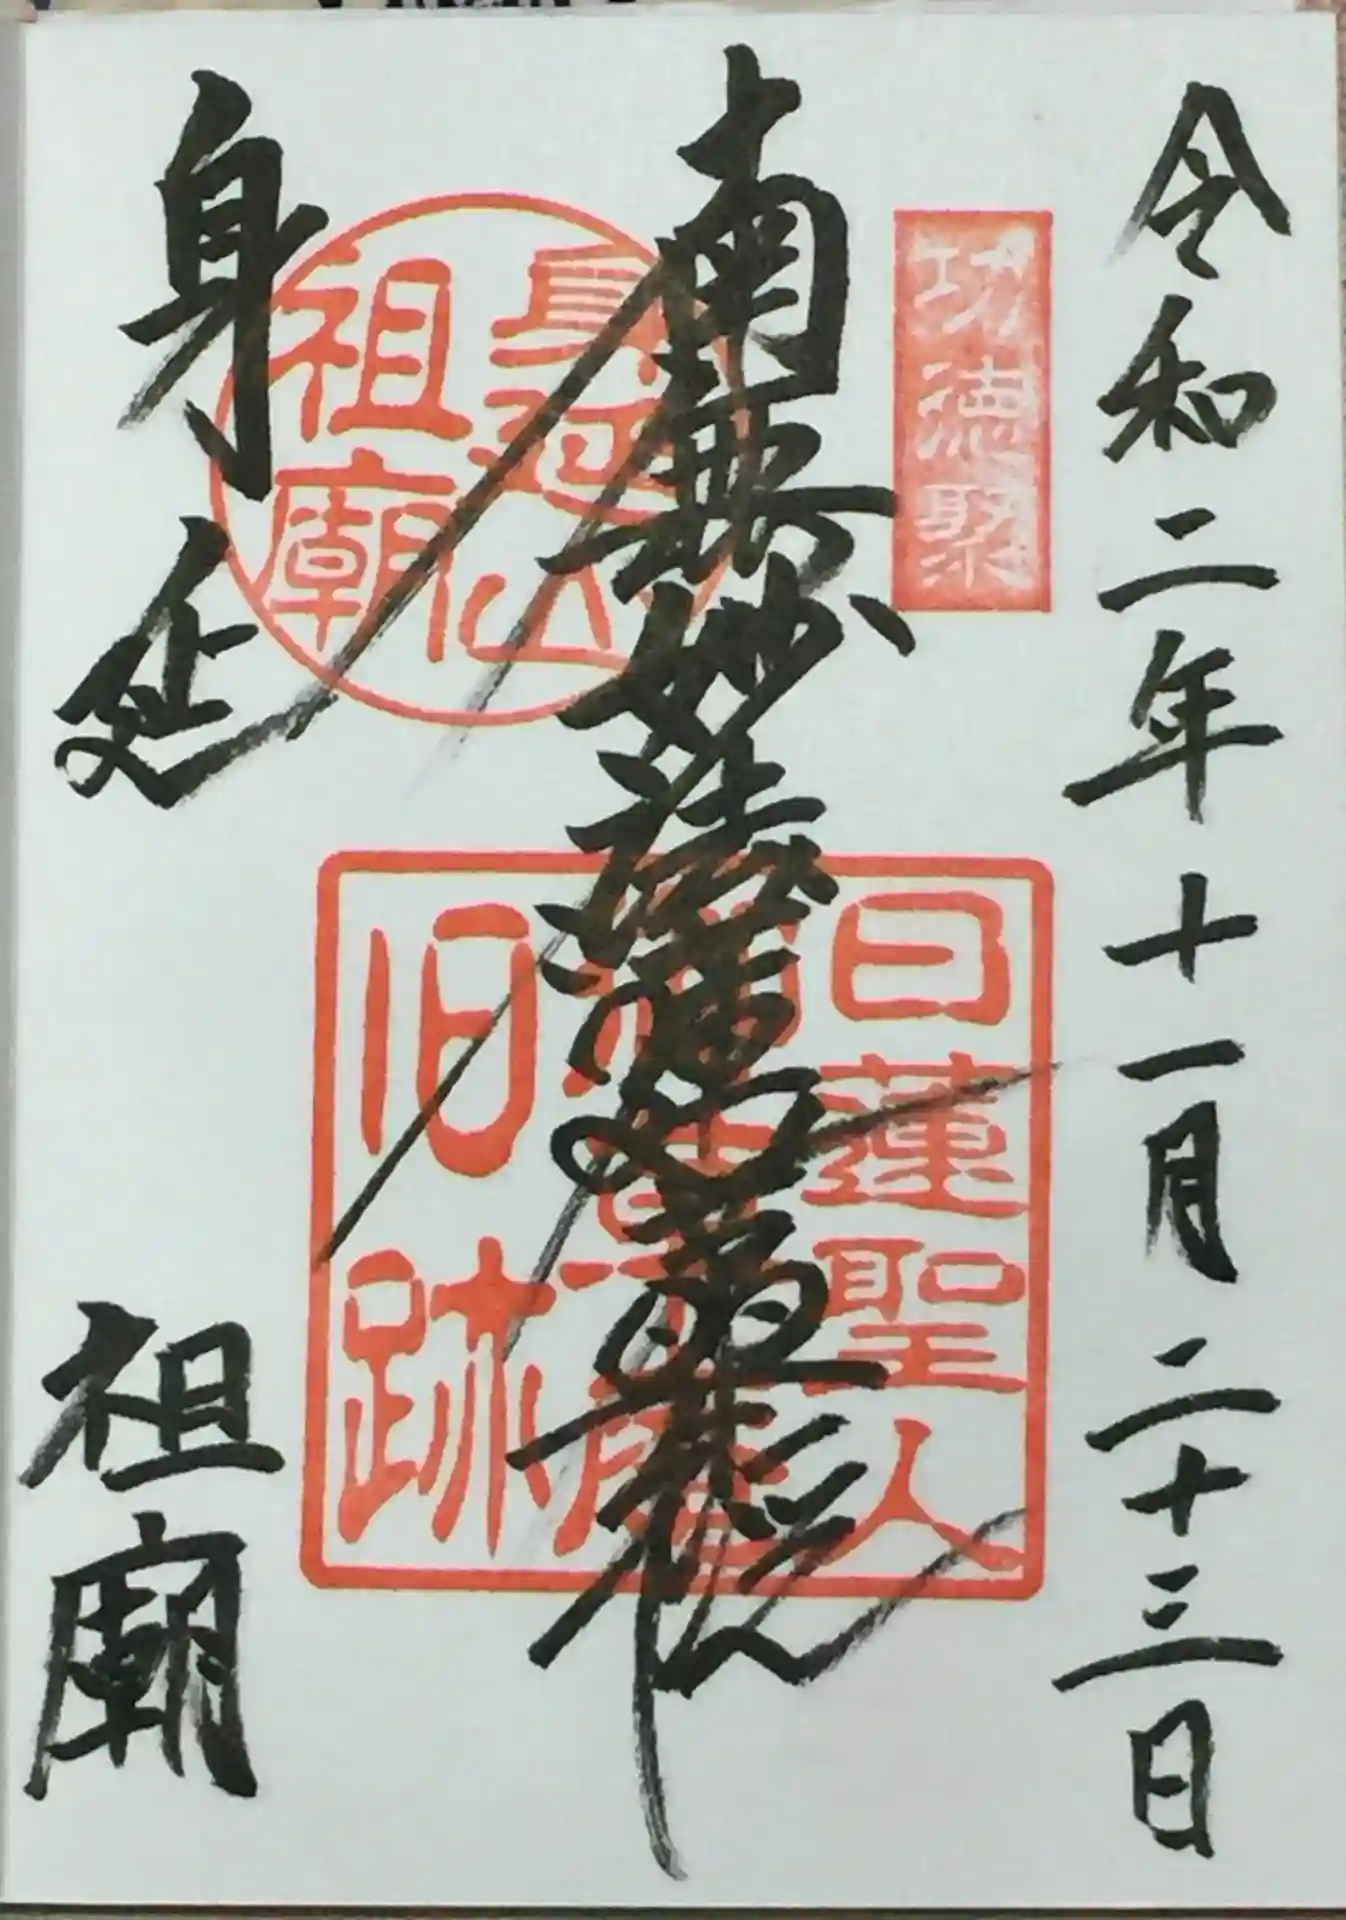 令和二年十一月二十三日
功徳聚
南無妙法蓮華経
日蓮聖人
旧跡
身延山
祖廟
身延
祖廟